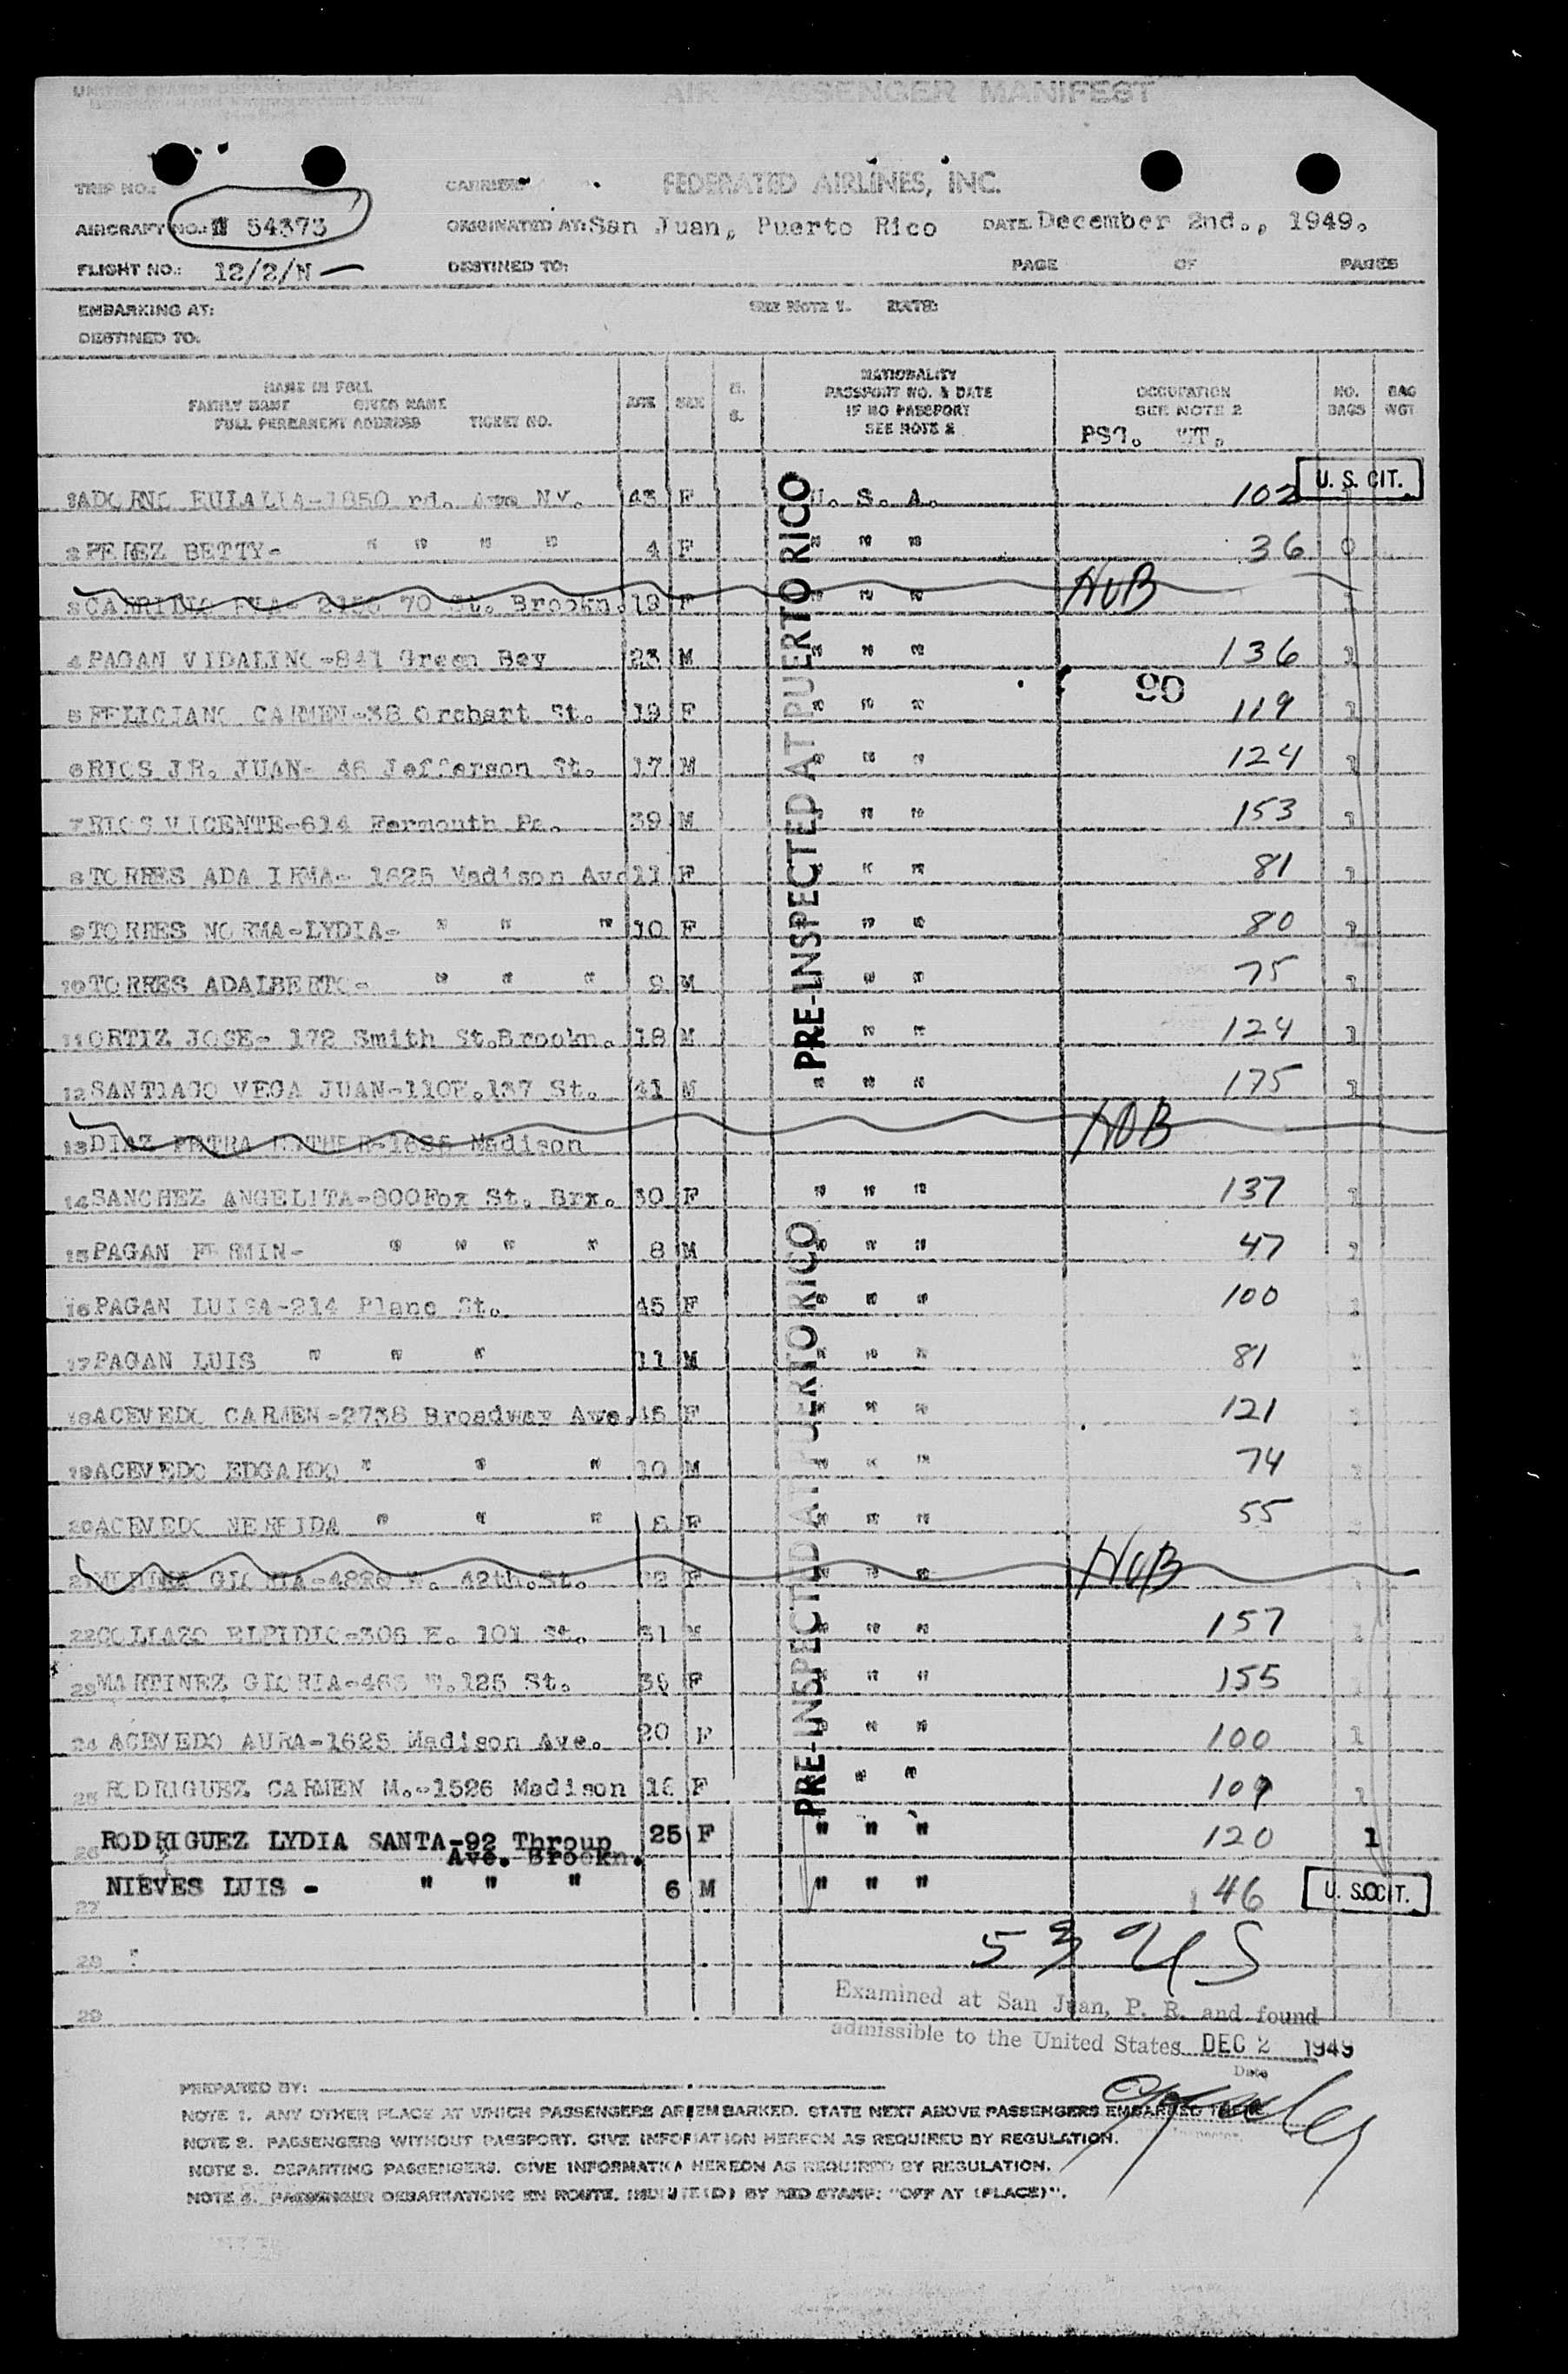 UNITED STATES DEPARTMENT OF JUSTICE
AIR PASSENGER MANIFEST
TRIP NO.: CARRIER FEDERATED AIRLINES, INC.
AIRCRAFT NO.: N 54373 ORIGINATED AT: San Juan, Puerto Rico DATE December 2nd., 1949.
FLIGHT NO.: 12/2/N DESTINED TO: PAGE OF PAGES
EMBARKING AT: SEE NOTE 1. DATE:
DESTINED TO.
NAME IN FULL
FAMILY NAME GIVEN NAME
FULL PERMANENT ADDRESS TICKET NO.
AGE SEX
NATIONALITY
PASSPORT NO. & DATE
IF NO PASSPORT
SEE NOTE 2
OCCUPATION
SEE NOTE 2
PSG. WT.
NO. BAGS
BAG WGT
PRE-INSPECTED AT PUERTO RICO
U. S. CIT.
1 ADORNO EULALIA-1850 rd. Ave NY. 43 F U. S. A. 102
2 PEREZ BETTY- " " " " 4 F " " " 36 0
3 70 St. Brookn. 19 F " " "
4 PAGAN VIDALINO-841 Green Bey 23 M " " " 136 1
90
5 FELICIANO CARMEN-38 Orchart St. 19 F " " " 119 1
6 RIOS JR. JUAN- 46 Jefferson St. 17 M " " " 124 1
7 RIOS VICENTE-614 Farmouth Pa. 39 M " " " 153 1
8 TORRES ADA IRMA- 1625 Madison Ave 11 F " " " 81 1
9 TORRES NORMA-LYDIA- " " " 10 F " " " 80 1
10 TORRES ADALBERTO- " " " 9 M " " " 75 1
11 ORTIZ JOSE- 172 Smith St.Brookn. 18 M " " " 124 1
12 SANTIAGO VEGA JUAN-110E.137 St. 41 M " " " 175 1
13 DIAZ PETRA ESTHER-1625 Madison
14 SANCHEZ ANGELITA-800Fox St. Brx. 30 F " " " 137 1
15 PAGAN FERMIN- " " " " 8 M " " " 47 1
16 PAGAN LUISA-214 Plane St. 45 F " " " 100
17 PAGAN LUIS " " " 11 M " " " 81
18 ACEVEDO CARMEN-2738 Broadway Ave. F " " " 121
19 ACEVEDO EDGARDO " " " 10 M " " " 74
20 ACEVEDO NEREIDA " " " F " " " 55
21 GLORIA- 42th.St. F " " "
22 COLLAZO ELPIDIO-306 E. 101 St. 31 M " " " 157
23 MARTINEZ GLORIA-463 W.125 St. F " " " 155
24 ACEVEDO AURA-1625 Madison Ave. 20 F " " " 100 1
25 RODRIGUEZ CARMEN M.-1526 Madison F " " 109 1
PRE-INSPECTED AT PUERTO RICO
26 RODRIGUEZ LYDIA SANTA-92 Throup 25 F " " " 120 1
Ave. Brookn.
27 NIEVES LUIS - " " " 6 M " " " 46 0 U. S. CIT.
28 53 US
29
Examined at San Juan, P. R. and found
admissible to the United States DEC 2 1949
Date
PREPARED BY:
NOTE 1. ANY OTHER PLACE AT WHICH PASSENGERS ARE EMBARKED. STATE NEXT ABOVE PASSENGERS EMBARKED THERE.
NOTE 2. PASSENGERS WITHOUT PASSPORT. GIVE INFORMATION HEREON AS REQUIRED BY REGULATION.
NOTE 3. DEPARTING PASSENGERS. GIVE INFORMATION HEREON AS REQUIRED BY REGULATION.
NOTE 4. PASSENGER DEBARKATIONS EN ROUTE. INDICATE(D) BY RED STAMP: "OFF AT (PLACE)".